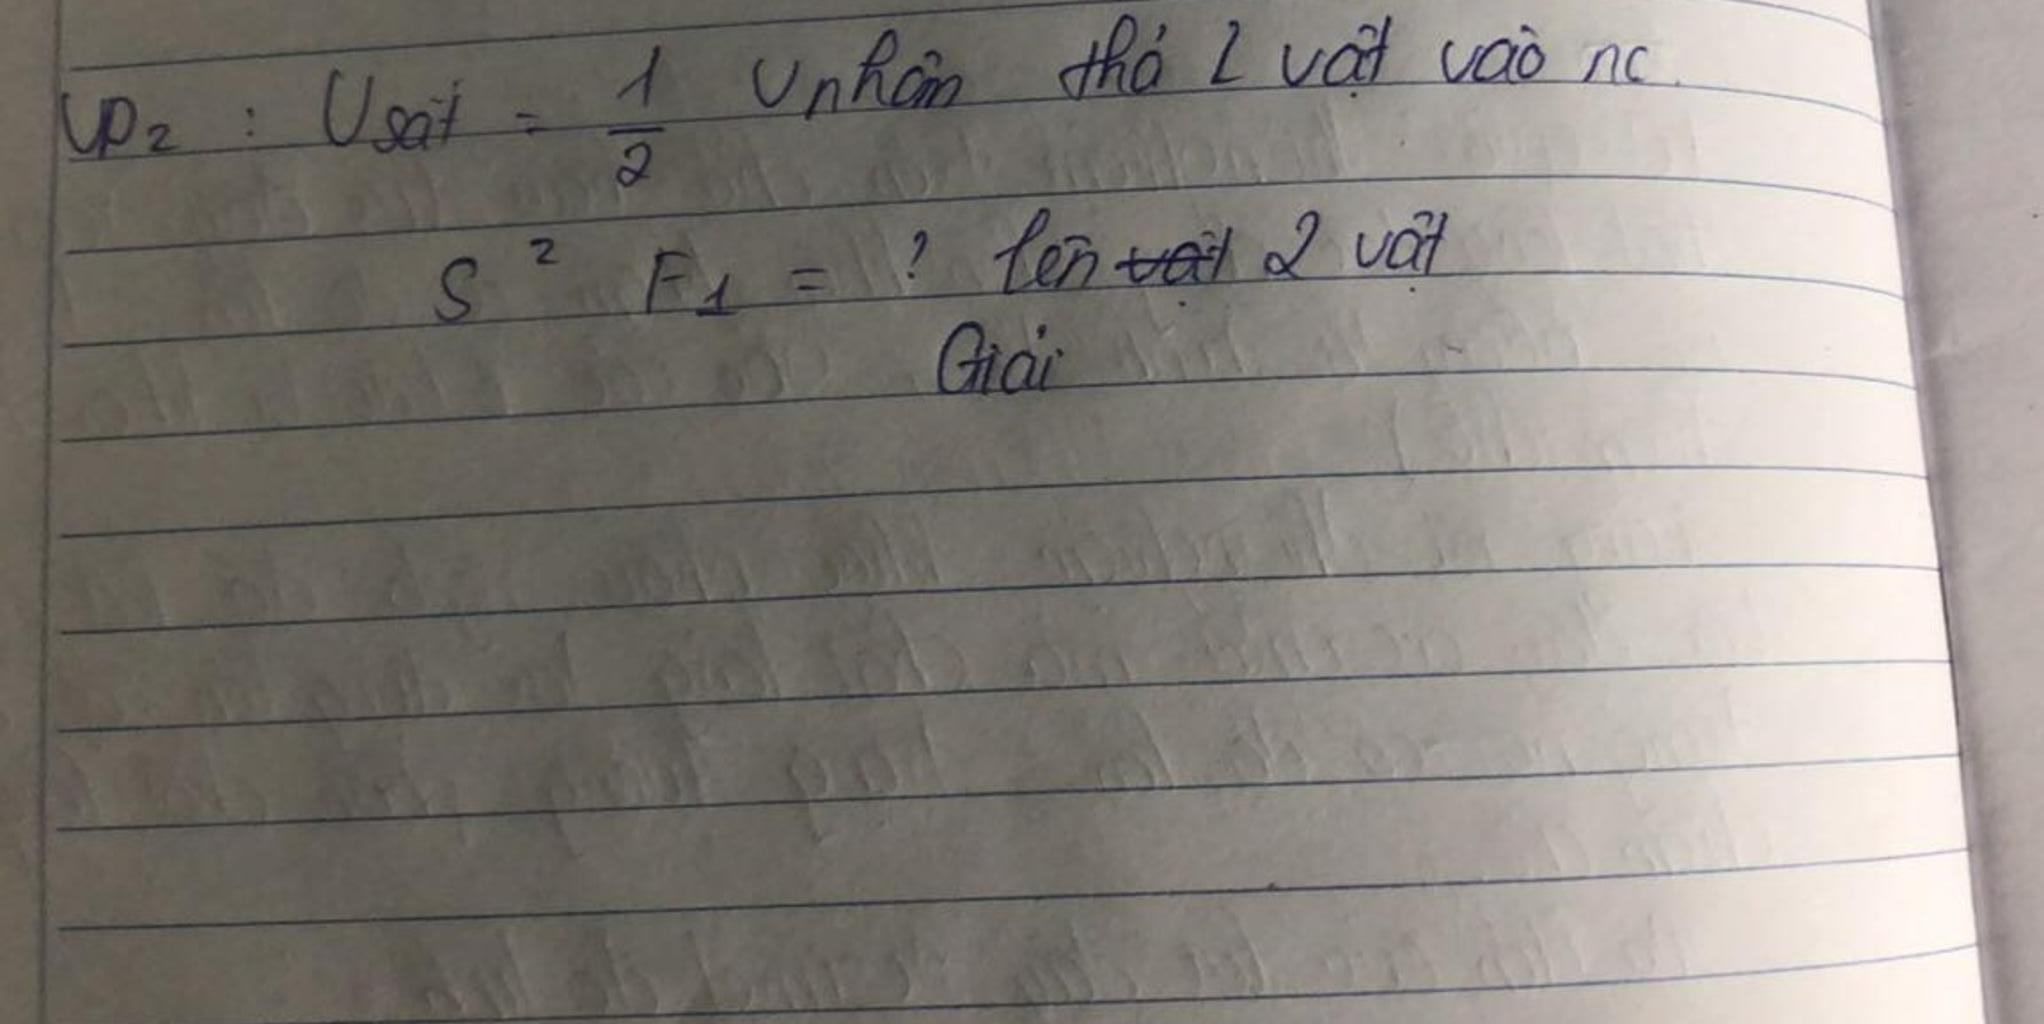 VD2 : Vsắt = 1/2 Vnhôm thả 2 vật vào nc.
S² F1 = ? lên vật 2 vật
Giải